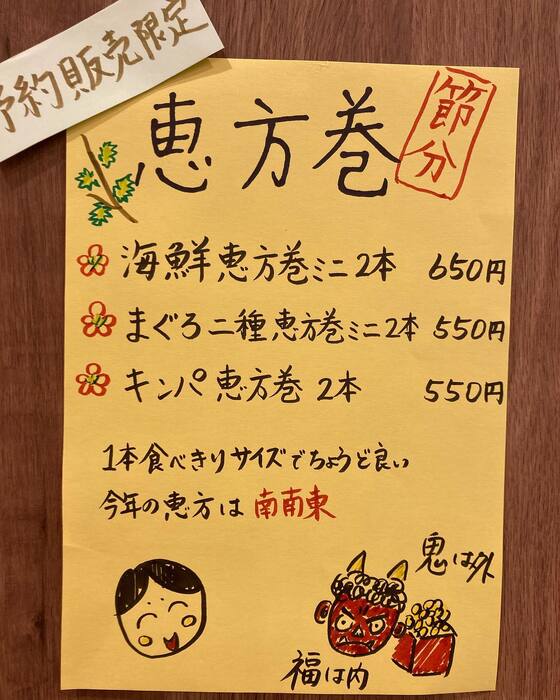 予約販売限定
恵方巻
節分
海鮮恵方巻ミニ2本 650円
まぐろ二種恵方巻ミニ2本 550円
キンパ恵方巻 2本 550円
1本食べきりサイズでちょうど良い
今年の恵方は南南東
鬼は外
福は内